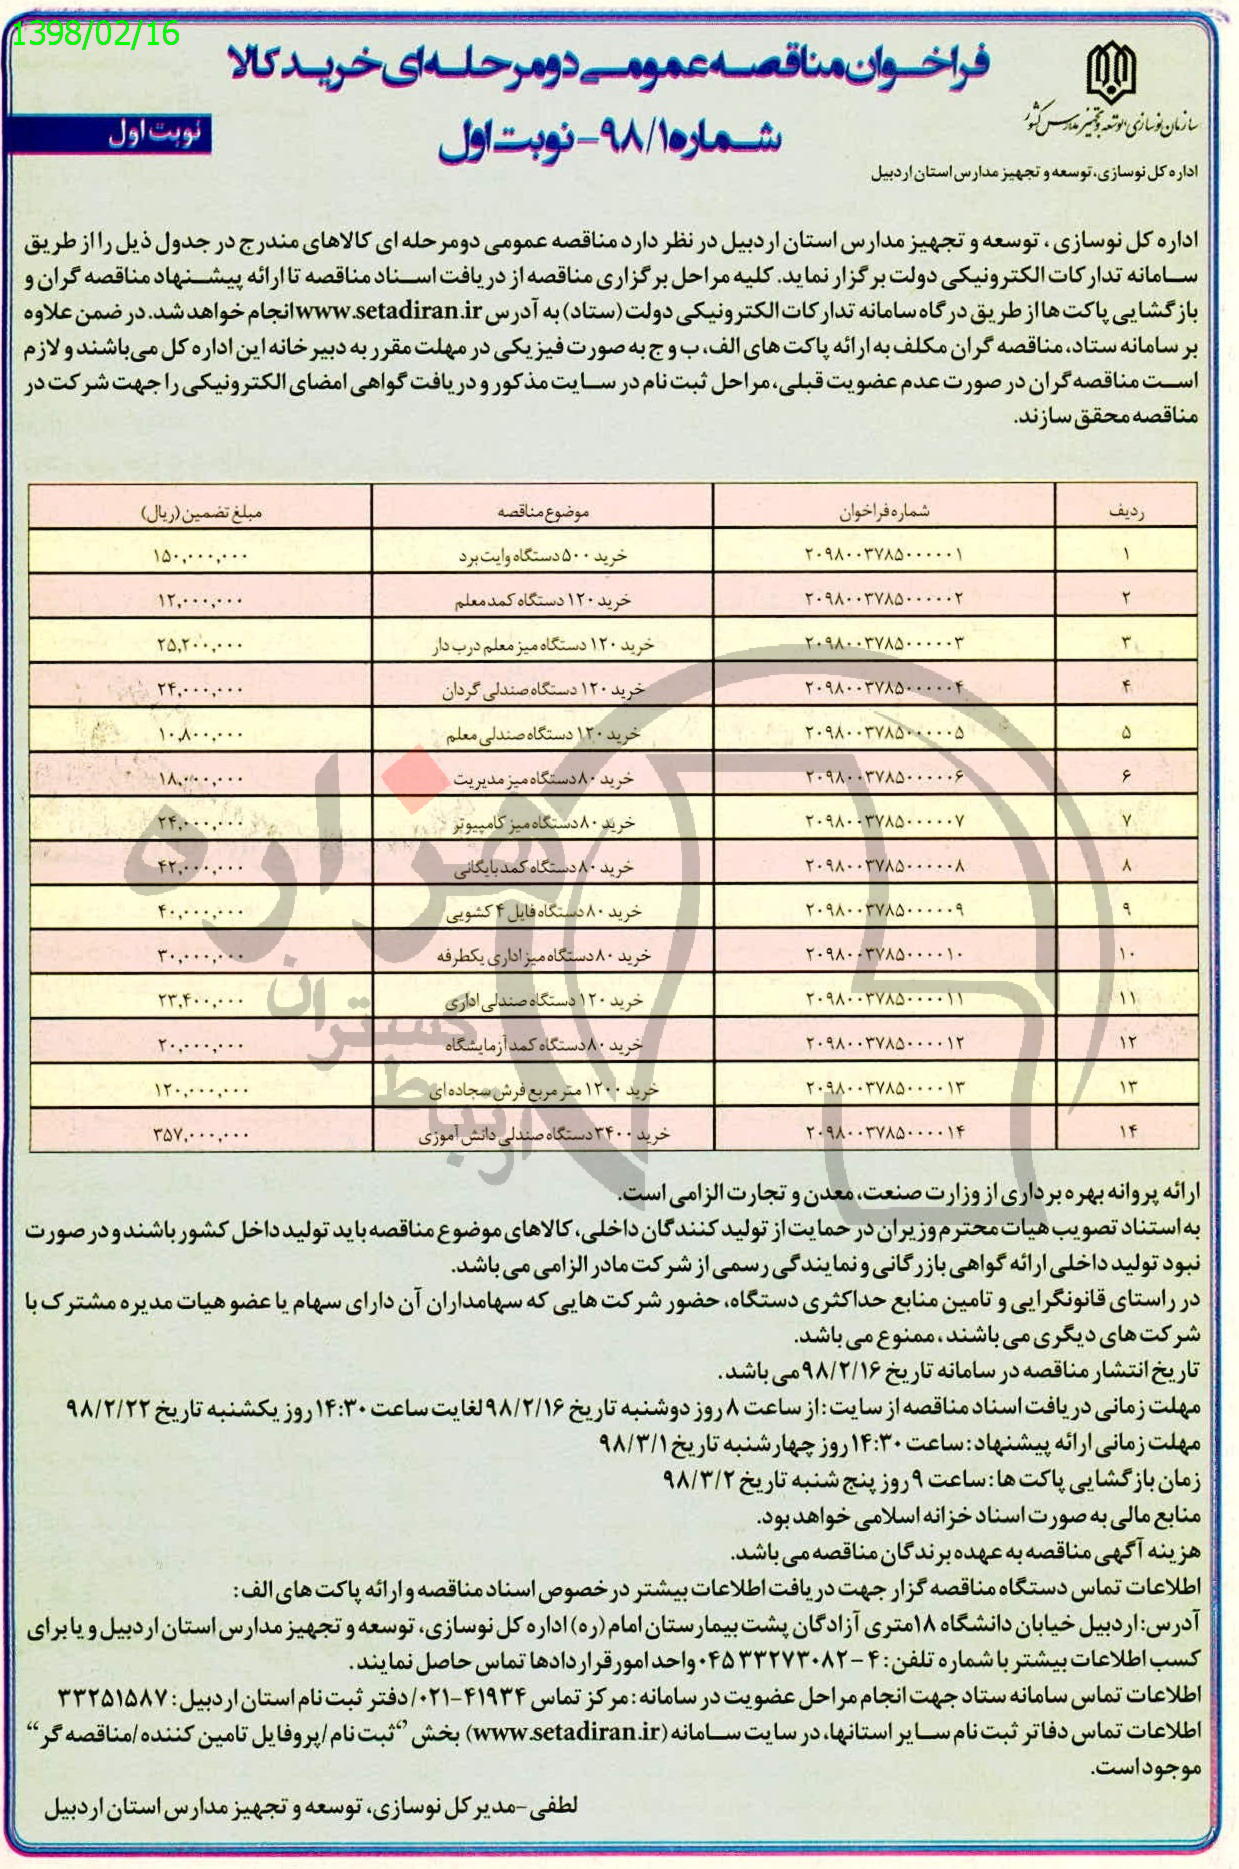 1398/02/16
فراخوان مناقصه عمومی دومرحله‌ای خرید کالا
شماره ۹۸/۱ - نوبت اول
نوبت اول
سازمان نوسازی، توسعه و تجهیز مدارس کشور
اداره کل نوسازی، توسعه و تجهیز مدارس استان اردبیل
اداره کل نوسازی ، توسعه و تجهیز مدارس استان اردبیل در نظر دارد مناقصه عمومی دومرحله ای کالاهای مندرج در جدول ذیل را از طریق
سامانه تدارکات الکترونیکی دولت برگزار نماید. کلیه مراحل برگزاری مناقصه از دریافت اسناد مناقصه تا ارائه پیشنهاد مناقصه گران و
بازگشایی پاکت ها از طریق درگاه سامانه تدارکات الکترونیکی دولت (ستاد) به آدرس www.setadiran.ir انجام خواهد شد. در ضمن علاوه
بر سامانه ستاد، مناقصه گران مکلف به ارائه پاکت های الف، ب و ج به صورت فیزیکی در مهلت مقرر به دبیرخانه این اداره کل می‌باشند و لازم
است مناقصه‌گران در صورت عدم عضویت قبلی، مراحل ثبت نام در سایت مذکور و دریافت گواهی امضای الکترونیکی را جهت شرکت در
مناقصه محقق سازند.
ردیف شماره فراخوان موضوع مناقصه مبلغ تضمین (ریال)
۱ ۲۰۹۸۰۰۳۷۸۵۰۰۰۰۰۱ خرید ۵۰۰ دستگاه وایت برد ۱۵۰,۰۰۰,۰۰۰
۲ ۲۰۹۸۰۰۳۷۸۵۰۰۰۰۰۲ خرید ۱۲۰ دستگاه کمد معلم ۱۲,۰۰۰,۰۰۰
۳ ۲۰۹۸۰۰۳۷۸۵۰۰۰۰۰۳ خرید ۱۲۰ دستگاه میز معلم درب دار ۲۵,۲۰۰,۰۰۰
۴ ۲۰۹۸۰۰۳۷۸۵۰۰۰۰۰۴ خرید ۱۲۰ دستگاه صندلی گردان ۲۴,۰۰۰,۰۰۰
۵ ۲۰۹۸۰۰۳۷۸۵۰۰۰۰۰۵ خرید ۱۲۰ دستگاه صندلی معلم ۱۰,۸۰۰,۰۰۰
۶ ۲۰۹۸۰۰۳۷۸۵۰۰۰۰۰۶ خرید ۸۰ دستگاه میز مدیریت ۱۸,۰۰۰,۰۰۰
۷ ۲۰۹۸۰۰۳۷۸۵۰۰۰۰۰۷ خرید ۸۰ دستگاه میز کامپیوتر ۲۴,۰۰۰,۰۰۰
۸ ۲۰۹۸۰۰۳۷۸۵۰۰۰۰۰۸ خرید ۸۰ دستگاه کمد بایگانی ۴۲,۰۰۰,۰۰۰
۹ ۲۰۹۸۰۰۳۷۸۵۰۰۰۰۰۹ خرید ۸۰ دستگاه فایل ۴ کشویی ۴۰,۰۰۰,۰۰۰
۱۰ ۲۰۹۸۰۰۳۷۸۵۰۰۰۰۱۰ خرید ۸۰ دستگاه میز اداری یکطرفه ۳۰,۰۰۰,۰۰۰
۱۱ ۲۰۹۸۰۰۳۷۸۵۰۰۰۰۱۱ خرید ۱۲۰ دستگاه صندلی اداری ۲۳,۴۰۰,۰۰۰
۱۲ ۲۰۹۸۰۰۳۷۸۵۰۰۰۰۱۲ خرید ۸۰ دستگاه کمد آزمایشگاه ۲۰,۰۰۰,۰۰۰
۱۳ ۲۰۹۸۰۰۳۷۸۵۰۰۰۰۱۳ خرید ۱۲۰۰ متر مربع فرش سجاده‌ای ۱۲۰,۰۰۰,۰۰۰
۱۴ ۲۰۹۸۰۰۳۷۸۵۰۰۰۰۱۴ خرید ۳۴۰۰ دستگاه صندلی دانش آموزی ۳۵۷,۰۰۰,۰۰۰
هزاره
ارتباط گستران
ارائه پروانه بهره برداری از وزارت صنعت، معدن و تجارت الزامی است.
به استناد تصویب هیات محترم وزیران در حمایت از تولید کنندگان داخلی، کالاهای موضوع مناقصه باید تولید داخل کشور باشند و در صورت
نبود تولید داخلی ارائه گواهی بازرگانی و نمایندگی رسمی از شرکت مادر الزامی می باشد.
در راستای قانونگرایی و تامین منابع حداکثری دستگاه، حضور شرکت هایی که سهامداران آن دارای سهام یا عضو هیات مدیره مشترک با
شرکت های دیگری می باشند ، ممنوع می باشد.
تاریخ انتشار مناقصه در سامانه تاریخ ۹۸/۲/۱۶ می باشد .
مهلت زمانی دریافت اسناد مناقصه از سایت : از ساعت ۸ روز دوشنبه تاریخ ۹۸/۲/۱۶ لغایت ساعت ۱۴:۳۰ روز یکشنبه تاریخ ۹۸/۲/۲۲
مهلت زمانی ارائه پیشنهاد : ساعت ۱۴:۳۰ روز چهارشنبه تاریخ ۹۸/۳/۱
زمان بازگشایی پاکت ها : ساعت ۹ روز پنج شنبه تاریخ ۹۸/۳/۲
منابع مالی به صورت اسناد خزانه اسلامی خواهد بود.
هزینه آگهی مناقصه به عهده برندگان مناقصه می باشد.
اطلاعات تماس دستگاه مناقصه گزار جهت دریافت اطلاعات بیشتر در خصوص اسناد مناقصه و ارائه پاکت های الف:
آدرس: اردبیل خیابان دانشگاه ۱۸ متری آزادگان پشت بیمارستان امام (ره) اداره کل نوسازی، توسعه و تجهیز مدارس استان اردبیل و یا برای
کسب اطلاعات بیشتر با شماره تلفن : ۴ - ۰۴۵۳۳۲۷۳۰۸۲ واحد امور قراردادها تماس حاصل نمایند .
اطلاعات تماس سامانه ستاد جهت انجام مراحل عضویت در سامانه : مرکز تماس ۴۱۹۳۴-۰۲۱/ دفتر ثبت نام استان اردبیل : ۳۳۲۵۱۵۸۷
اطلاعات تماس دفاتر ثبت نام سایر استانها، در سایت سامانه (www.setadiran.ir) بخش "ثبت نام / پروفایل تامین کننده / مناقصه گر"
موجود است.
لطفی - مدیر کل نوسازی، توسعه و تجهیز مدارس استان اردبیل